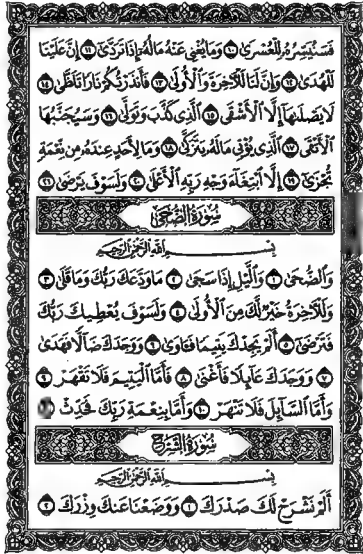 فَسَنُيَسِّرُهُ لِلْعُسْرَىٰ ١٠ وَمَا يُغْنِي عَنْهُ مَالُهُ إِذَا تَرَدَّىٰ ١١ إِنَّ عَلَيْنَا
لَلْهُدَىٰ ١٢ وَإِنَّ لَنَا لَلْآخِرَةَ وَالْأُولَىٰ ١٣ فَأَنذَرْتُكُمْ نَارًا تَلَظَّىٰ ١٤
لَا يَصْلَاهَا إِلَّا الْأَشْقَى ١٥ الَّذِي كَذَّبَ وَتَوَلَّىٰ ١٦ وَسَيُجَنَّبُهَا
الْأَتْقَى ١٧ الَّذِي يُؤْتِي مَالَهُ يَتَزَكَّىٰ ١٨ وَمَا لِأَحَدٍ عِندَهُ مِن نِّعْمَةٍ
تُجْزَىٰ ١٩ إِلَّا ابْتِغَاءَ وَجْهِ رَبِّهِ الْأَعْلَىٰ ٢٠ وَلَسَوْفَ يَرْضَىٰ ٢١
سُورَةُ الضُّحَىٰ
بِسْمِ اللَّهِ الرَّحْمَٰنِ الرَّحِيمِ
وَالضُّحَىٰ ١ وَاللَّيْلِ إِذَا سَجَىٰ ٢ مَا وَدَّعَكَ رَبُّكَ وَمَا قَلَىٰ ٣
وَلَلْآخِرَةُ خَيْرٌ لَّكَ مِنَ الْأُولَىٰ ٤ وَلَسَوْفَ يُعْطِيكَ رَبُّكَ
فَتَرْضَىٰ ٥ أَلَمْ يَجِدْكَ يَتِيمًا فَآوَىٰ ٦ وَوَجَدَكَ ضَالًّا فَهَدَىٰ
٧ وَوَجَدَكَ عَائِلًا فَأَغْنَىٰ ٨ فَأَمَّا الْيَتِيمَ فَلَا تَقْهَرْ ٩
وَأَمَّا السَّائِلَ فَلَا تَنْهَرْ ١٠ وَأَمَّا بِنِعْمَةِ رَبِّكَ فَحَدِّثْ ١١
سُورَةُ الشَّرْحِ
بِسْمِ اللَّهِ الرَّحْمَٰنِ الرَّحِيمِ
أَلَمْ نَشْرَحْ لَكَ صَدْرَكَ ١ وَوَضَعْنَا عَنكَ وِزْرَكَ ٢